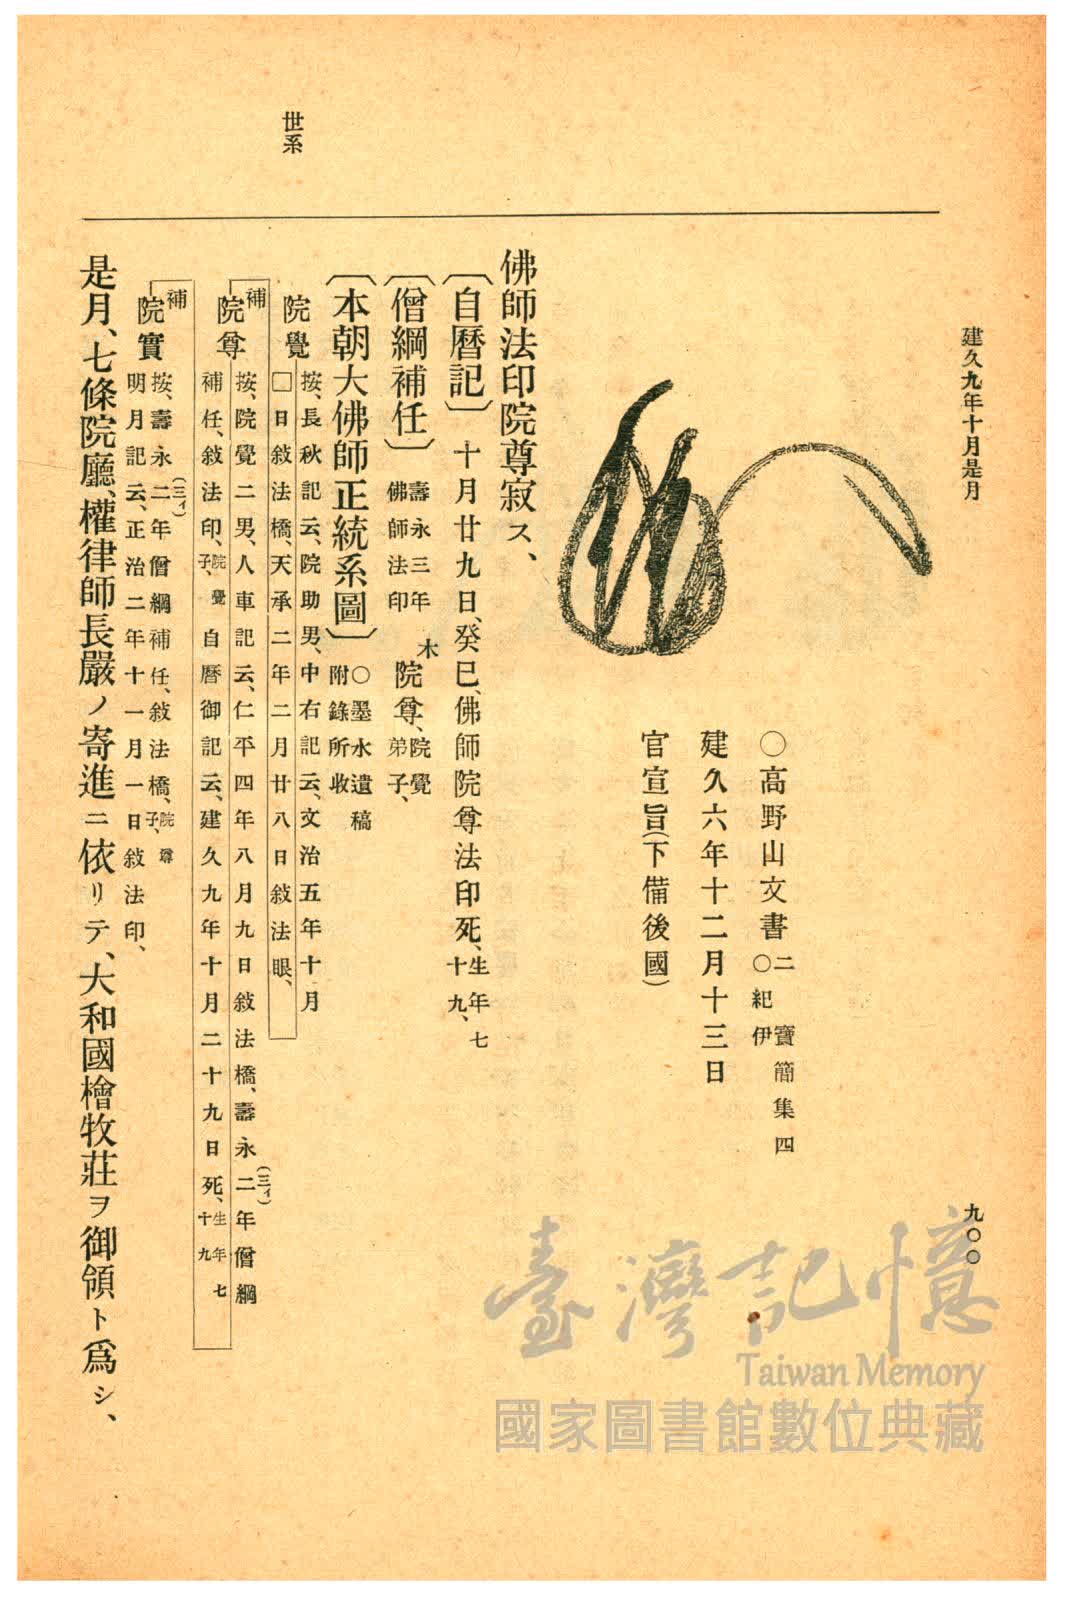 建久九年十月是月
九〇〇
〇高野山文書 二 寶簡集四
〇紀伊
建久六年十二月十三日
官宣旨(下備後國)
佛師法印院尊寂ス、
〔自曆記〕 十月廿九日、癸巳、佛師院尊法印死、生年七
十九、
〔僧綱補任〕 壽永三年
佛師法印
木
院尊、院覺
弟子、
〔本朝大佛師正統系圖〕 〇墨水遺稿
附錄所收
世系
院覺 按、長秋記云、院助男、中右記云、文治五年十月
□日敍法橋、天承二年二月廿八日敍法眼、
補
院尊 按、院覺二男、人車記云、仁平四年八月九日敍法橋、壽永二(三イ)年僧綱
補任、敍法印、院覺子、自曆御記云、建久九年十月二十九日死、生年七十九
補
院實 按、壽永二(三イ)年僧綱補任、敍法橋、院尊子、
明月記云、正治二年十一月一日敍法印、
是月、七條院廳、權律師長嚴ノ寄進ニ依リテ、大和國檜牧莊ヲ御領ト爲シ、
臺灣記憶
Taiwan Memory
國家圖書館數位典藏